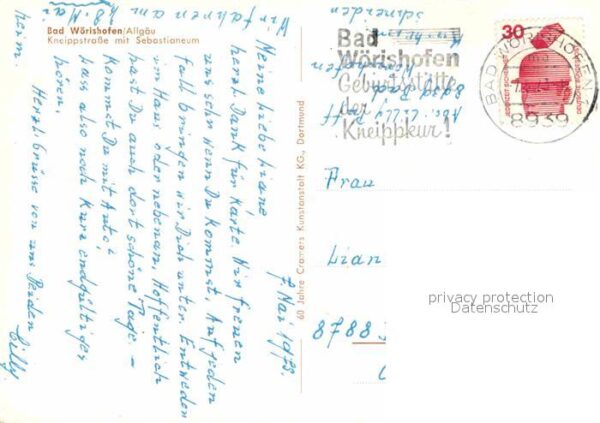 Bad Wörishofen/Allgäu
Kneippstraße mit Sebastianeum
7. Mai 1973.
Meine liebe Liane
herzl. Dank für Karte. Wir freuen
uns sehr wenn Du kommst. Auf jeden
fall bringen wir Dich unter. Entweder
im Haus oder nebenan. Hoffentlich
hast Du auch dort schöne Tage. –
Kommst Du mit Auto?
Lass also noch kurz endgültiges
hören.
Herzl. Grüsse von uns Beiden
Cilly
Wir fahren am 18. Mai
heim.
60 Jahre Cramers Kunstanstalt KG., Dortmund
Abs. Cilly
Bad
Wörishofen
Geburtsstätte
der
Kneippkur!
BAD WÖRISHOFEN
8939
30
DEUTSCHE BUNDESPOST
Frau
Lian
8788
privacy protection
Datenschutz